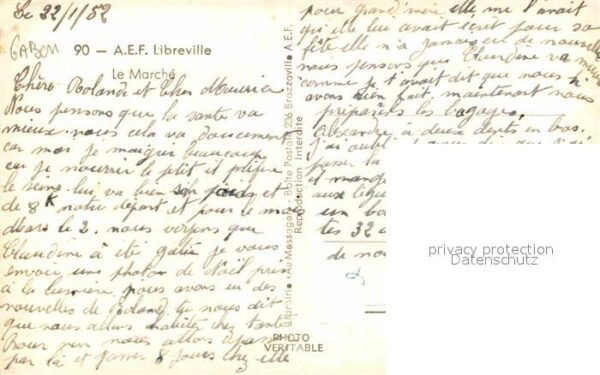 Le 22/1/52
GABON
90 - A.E.F. Libreville
Le Marché
Chère Rolande et Cher Maurice
Nous pensons que la santé va
mieux. nous cela va doucement
car moi je maigris beaucoup
car je nourrir le petit il préfère
le sein. lui va bien son poids est
de 8K notre départ et pour le mois
Mars le 2. nous voyons que
Claudine à ète gatée je vous
envoir une photon de Noël pris
à la lumière, nous avons eu des
nouvelles de Roland. tu nous dit
que nous allons habiter chez tante
Pour rien nous allons
par là et passer 8 jours chez elle
PHOTO
VERITABLE
Librairie "Au Messager" - Boite Postale 236 Brazzaville A.E.F.
Reproduction Interdite
pour grand'mère elle me l'avait
qu'elle lui avait écrit pour sa
fête elle n'a jamais eu de nouvelle
nous pensons que Claudine va mieux
comme je t'avait dit que nous
avons bien fait, maintenant nous
préparons les bagages,
Alexandre à deux dents en bas.
j'ai oubl
passer la
il mang
aux
un bo
tes 32
de no
privacy protection
Datenschutz